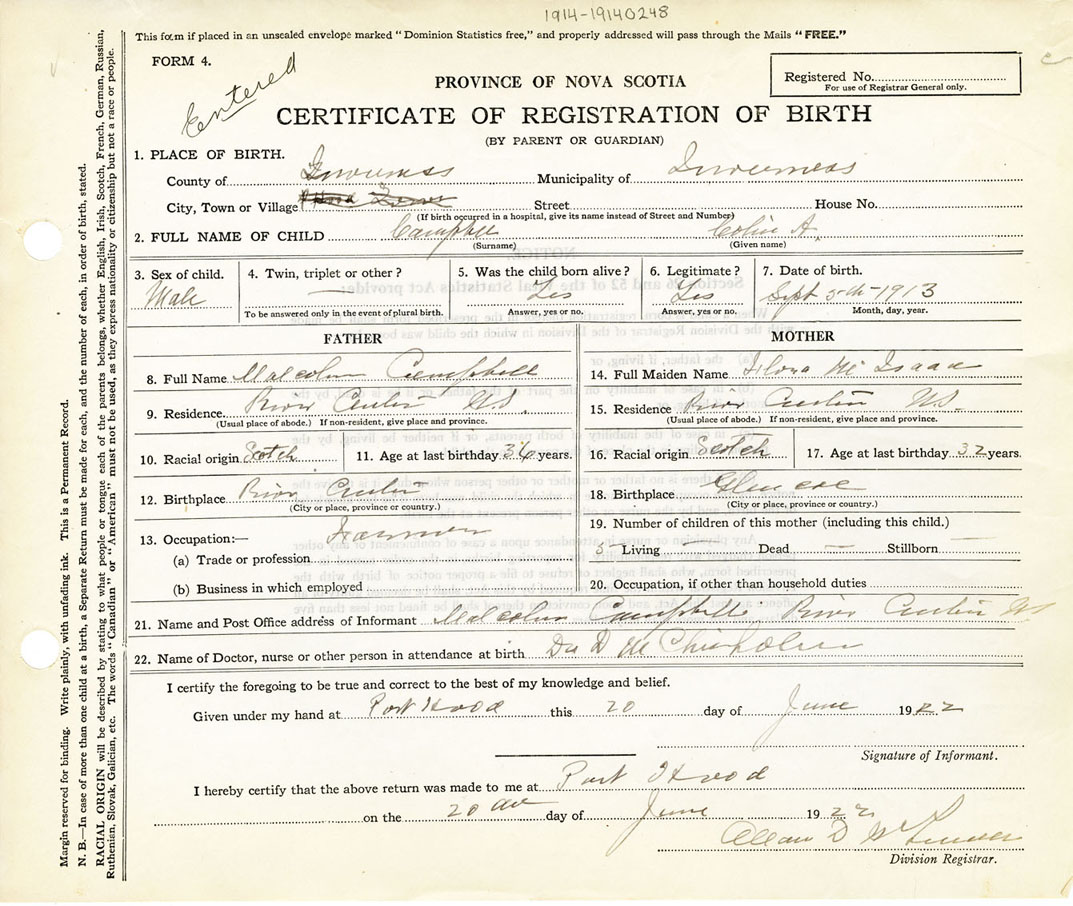 1914-19140248
This form if placed in an unsealed envelope marked "Dominion Statistics free," and properly addressed will pass through the Mails "FREE."
FORM 4.
Entered
PROVINCE OF NOVA SCOTIA
Registered No.
For use of Registrar General only.
CERTIFICATE OF REGISTRATION OF BIRTH
(BY PARENT OR GUARDIAN)
1. PLACE OF BIRTH.
County of Inverness Municipality of Inverness
City, Town or Village Street House No.
(If birth occurred in a hospital, give its name instead of Street and Number)
2. FULL NAME OF CHILD Campbell Colin A.
(Surname) (Given name)
3. Sex of child. 4. Twin, triplet or other? 5. Was the child born alive? 6. Legitimate? 7. Date of birth.
Male — Yes Yes Sept 5th-1913
To be answered only in the event of plural birth. Answer, yes or no. Answer, yes or no. Month, day, year.
FATHER
8. Full Name Malcolm Campbell
9. Residence. River N.S.
(Usual place of abode.) If non-resident, give place and province.
10. Racial origin Scotch 11. Age at last birthday 36 years.
12. Birthplace River
(City or place, province or country.)
13. Occupation:— Farmer
(a) Trade or profession
(b) Business in which employed
MOTHER
14. Full Maiden Name Flora Mc Isaac
15. Residence River N.S.
(Usual place of abode.) If non-resident, give place and province.
16. Racial origin Scotch 17. Age at last birthday 32 years.
18. Birthplace Glencoe
(City or place, province or country.)
19. Number of children of this mother (including this child.)
5 Living Dead — Stillborn —
20. Occupation, if other than household duties
21. Name and Post Office address of Informant Malcolm Campbell River NS
22. Name of Doctor, nurse or other person in attendance at birth Dr D Mc Chisholm
I certify the foregoing to be true and correct to the best of my knowledge and belief.
Given under my hand at Port Hood this 20 day of June 1922
Signature of Informant.
I hereby certify that the above return was made to me at Port Hood
on the 20 day of June 1922
Allan D
Division Registrar.
Margin reserved for binding. Write plainly, with unfading ink. This is a Permanent Record.
N. B.—In case of more than one child at a birth, a Separate Return must be made for each, and the number of each, in order of birth, stated.
RACIAL ORIGIN will be described by stating to what people or tongue each of the parents belongs, whether English, Irish, Scotch, French, German, Russian,
Ruthenian, Slovak, Galician, etc. The words "Canadian" or "American" must not be used, as they express nationality or citizenship but not a race or people.